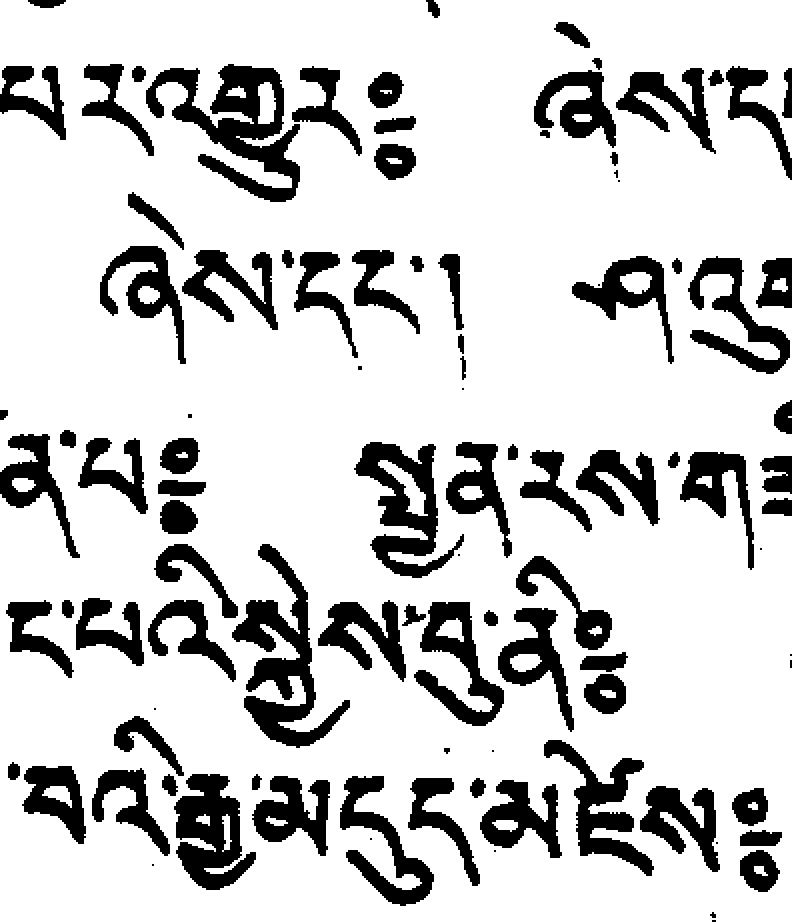 པར་འགྱུར༔ ཞེས་ད
ཞེས་དང་། ཤ་འ
ན་པ༔ སྤྱན་རས་ག
ང་པའི་སྐྱེས་བུ་ནི༔
་བའི་རྒྱ་མདུད་མཛེས༔